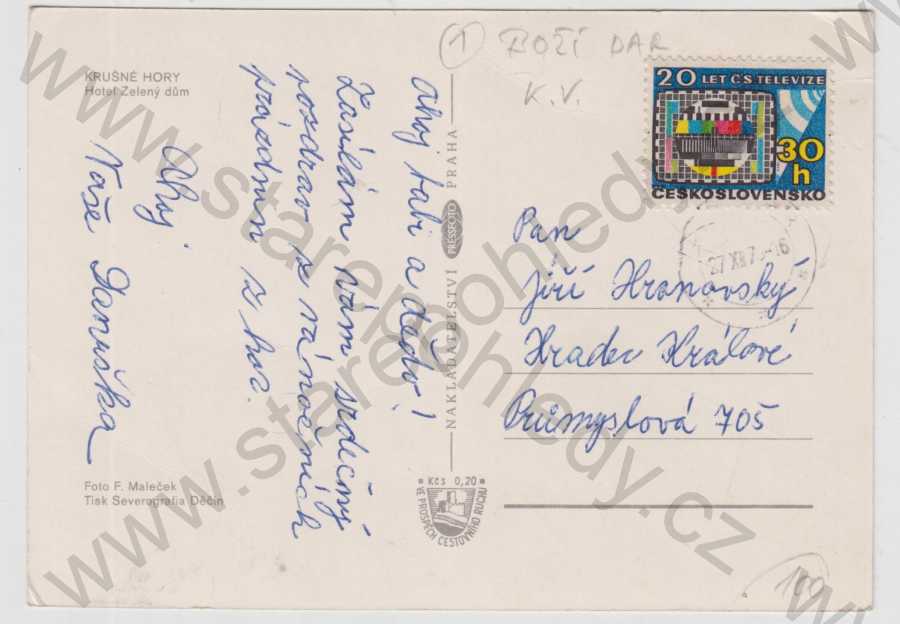 KRUŠNÉ HORY
Hotel Zelený dům
Ahoj babi a dědo!
Zasílám vám srdečný
pozdrav z vánočních
prázdnin z hor.
Ahoj
Vaše Danuška
Foto F. Maleček
Tisk Severografia Děčín
NAKLADATELSTVÍ PRESSFOTO PRAHA
Kčs 0,20
VE PROSPĚCH CESTOVNÍHO RUCHU
1 BOŽÍ DAR
K.V.
20 LET ČS TELEVIZE
30
h
ČESKOSLOVENSKO
27 XII 7
Pan
Jiří Hronovský
Hradec Králové
Průmyslová 705
100
www.starepohledy.cz